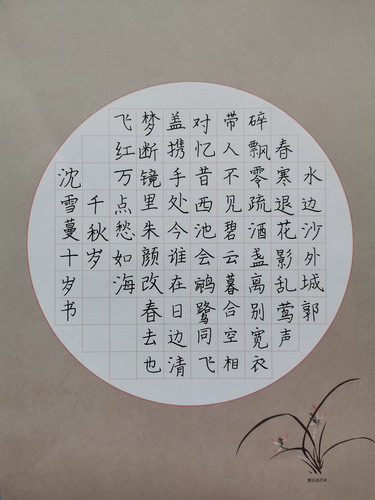 水边沙外城郭
春寒退花影乱莺声
碎飘零疏酒盏离别宽衣
带人不见碧云暮合空相
对忆昔西池会鹓鹭同飞
盖携手处今谁在日边清
梦断镜里朱颜改春去也
飞红万点愁如海
千秋岁
沈雪蔓十岁书